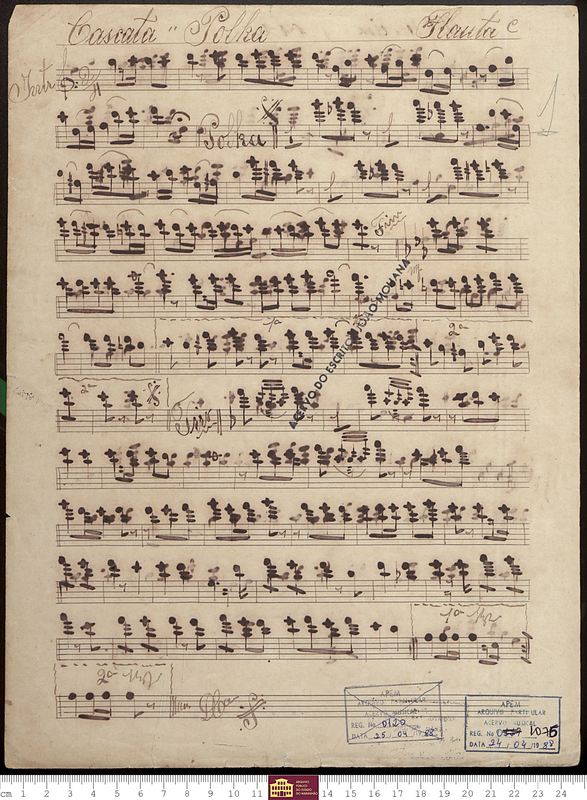 Cascata " Polka Flauta
Intr
1
Polka
Fim
1a
2a
2a
Trio
1a Vez
2a Vez
D C
ACERVO DO ESCRITOR JOÃO MOHANA
APEM
ARQUIVO PARTICULAR
ACERVO MUSICAL
REG. No 0120
DATA 25 / 04 / 1988
APEM
ARQUIVO PARTICULAR
ACERVO MUSICAL
REG. No 1075
DATA 24 / 04 / 1988
cm 1 2 3 4 5 6 7 8 9 10 11 ARQUIVO PÚBLICO DO ESTADO DO MARANHÃO 13 14 15 16 17 18 19 20 21 22 23 24